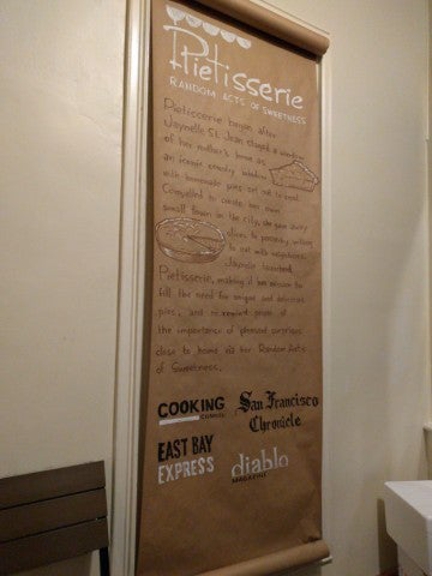 Pietisserie
RANDOM ACTS OF SWEETNESS
Pietisserie began after
Jaynelle St. Jean staged a window
of her mother's home as
an iconic country window
with homemade pies set out to cool.
Compelled to create her own
small town in the city, she gave away
slices to passersby
to eat with neighbors.
Jaynelle launched
Pietisserie, making it her mission to
fill the need for unique and delicious
pies, and to remind people of
the importance of pleasant surprises
close to home via her Random Acts
of Sweetness.
COOKING
San Francisco
Chronicle
EAST BAY
EXPRESS
diablo
MAGAZINE